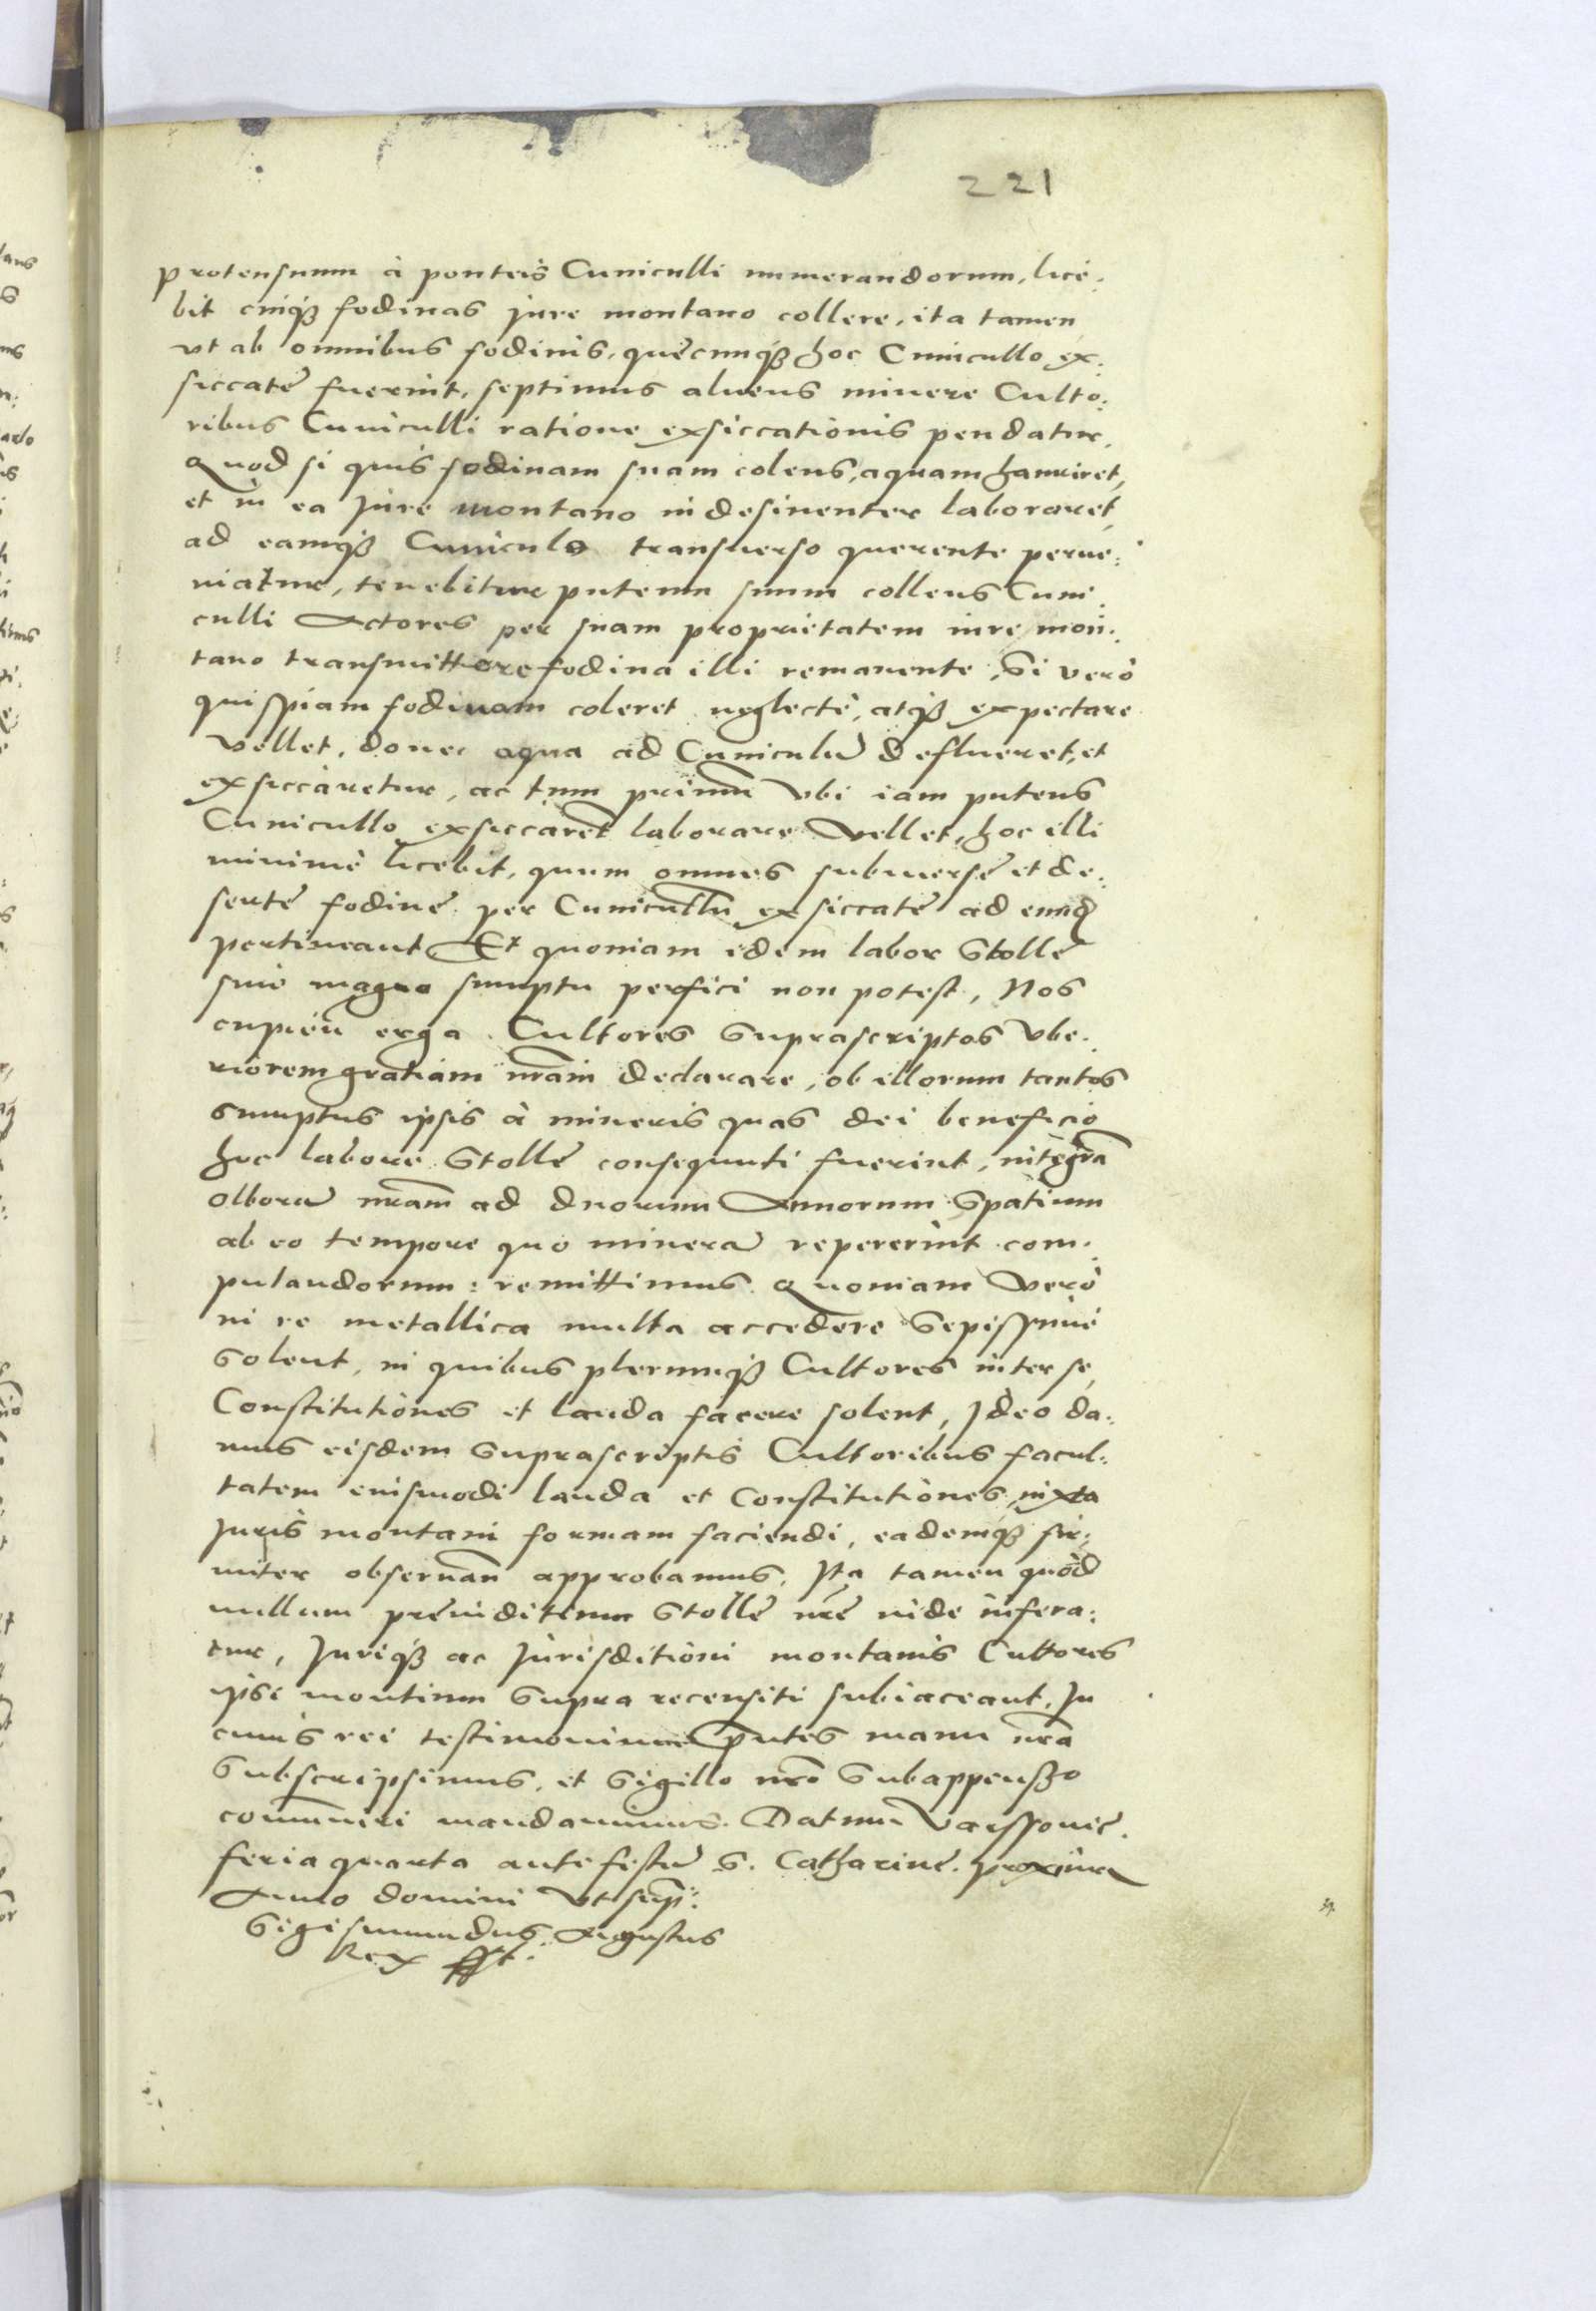 221
protensum à ponteis Cuniculli numerandorum, lice:
bit cuiqȝ fodinas jure montano collere, ita tamen
vt ab omnibus fodinis, quęcunqȝ hoc Cunicullo ex:
siccatę fuerint, septimus alueus minere Culto:
ribus Cuniculli ratione exsiccationis pendatur.
Quod si quis fodinam suam colens, aquam hauriret,
et in ea jure montano indesinenter laboraret,
ad eamqȝ Cuniculo transuerso querente perue:
niatur, tenebitur puteum suum collens Cuni:
culli Actores per suam proprietatem iure mon:
tano transmittere fodina illi remanente, Si verò
quispiam fodinam coleret neglectè, atqȝ expectare
vellet, donec aqua ad Cuniculū deflueret, et
exsiccaretur, ac tum primum vbi iam puteus
Cunicullo exsiccaret laborare vellet, hoc illi
minimè licebit, quum omnes subuersę et de:
sertę fodinę per Cunicullū exsiccatę ad eund
pertineant Et quoniam idem labor Stollę
sine magno sumptu perfici non potest, Nos
cupień erga Cultores Suprascriptos vbe:
riorem gratiam nram declarare, ob illorum tantos
sumptus ipsis à mineris quas dei beneficio
hoc labore Stollę consequuti fuerint, integrã
olborā nram ad duorum Annorum Spatium
ab eo tempore quo minerā repererint com:
putandorum: remittimus. Quoniam verò
in re metallica multa accedere Sepissimè
Solent, in quibus plerumqȝ Cultores inter se,
Constitutiones et lauda facere solent, Ideo da:
mus eisdem Suprascriptis Cultoribus facul:
tatem eiusmodi lauda et Constitutiones iuxta
Juris montani formam faciendi, eademqȝ fir:
miter obseruań approbamus. Ita tamen quòd
nullum pręiuditium Stollę nrę inde infera:
tur, Juriqȝ ac Jurisditioni montanis Cultores
ipsi montium Supra recensiti subiaceant, In
cuius rei testimonium pntes manu nra
Subscripsimus, et Sigillo nro Subappenßo
communiri mandauimus. Datum Varssouię.
feria quarta ante festū S. Catharinę proxima
Anno domini vt sup:
Sigismundus Augustus
Rex sst.